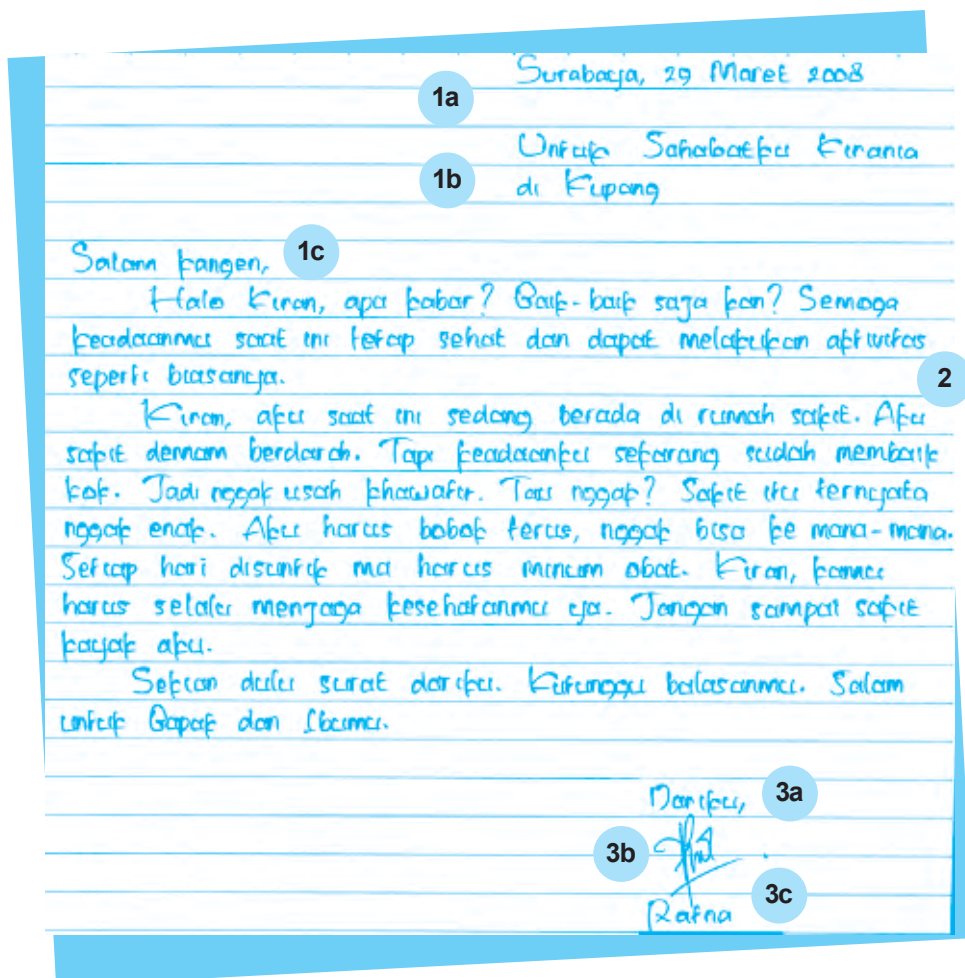 Surabaya, 29 Maret 2008
1a
Untuk Sahabatku Kirania
1b
di Kupang
Salam kangen, 1c
Halo Kiran, apa kabar? Baik-baik saja kan? Semoga
keadaanmu saat ini tetap sehat dan dapat melakukan aktivitas
seperti biasanya.
2
Kiran, aku saat ini sedang berada di rumah sakit. Aku
sakit demam berdarah. Tapi keadaanku sekarang sudah membaik
kok. Jadi nggak usah khawatir. Tau nggak? Sakit itu ternyata
nggak enak. Aku harus bobok terus, nggak bisa ke mana-mana.
Setiap hari disuntik ma harus minum obat. Kiran, kamu
harus selalu menjaga kesehatanmu ya. Jangan sampai sakit
kayak aku.
Sekian dulu surat dariku. Kutunggu balasanmu. Salam
untuk Bapak dan Ibumu.
Dariku, 3a
3b
3c
Ratna